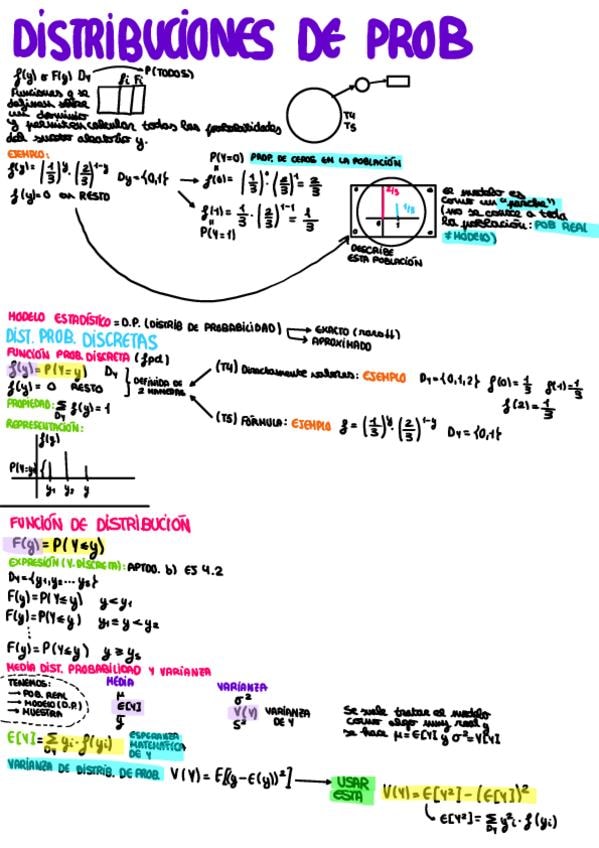 DISTRIBUCIONES DE PROB
f(y) o F(y) Dy → P(TODOS)
fi Fi
Funciones q se
definen sobre
un dominio
y permiten calcular todas las probabilidades
del suceso aleatorio y.
T4
T5
EJEMPLO:
f(y) = (1/3)^y · (2/3)^(1-y) Dy = {0,1}
f(y) = 0 en RESTO
P(Y=0) PROP. DE CEROS EN LA POBLACIÓN
f(0) = (1/3)^0 · (2/3)^1 = 2/3
f(1) = 1/3 · (2/3)^(1-1) = 1/3
P(Y=1)
2/3
1/3
0 1
DESCRIBE
ESTA POBLACIÓN
el modelo es
como un "parche"
(no se conoce a toda
la población: POB REAL
≠ MODELO)
MODELO ESTADÍSTICO = D.P. (DISTRIB DE PROBABILIDAD)
EXACTO (raro!!)
APROXIMADO
DIST. PROB. DISCRETAS
FUNCIÓN PROB. DISCRETA (fpd)
f(y) = P(Y=y) Dy
f(y) = 0 RESTO
DEFINIDA DE
2 MANERAS
(T4) Directamente valores: EJEMPLO Dy = {0,1,2} f(0) = 1/3 f(1) = 1/3
f(2) = 1/3
(T5) FÓRMULA: EJEMPLO f = (1/3)^y · (2/3)^(1-y) Dy = {0,1}
PROPIEDAD: Σ Dy f(y) = 1
REPRESENTACIÓN:
f(y)
P(Y=y)
y1 y2 y
FUNCIÓN DE DISTRIBUCIÓN
F(y) = P(Y≤y)
EXPRESIÓN (V. DISCRETA): APTDO. b) EJ 4.2
Dy = {y1, y2 ... ys}
F(y) = P(Y≤y) y < y1
F(y) = P(Y≤y) y1 ≤ y < y2
⋮
F(y) = P(Y≤y) y ≥ ys
MEDIA DIST. PROBABILIDAD Y VARIANZA
TENEMOS:
→ POB. REAL
→ MODELO (D.P.)
→ MUESTRA
MEDIA
μ
E[Y]
ȳ
VARIANZA
σ²
V(Y) VARIANZA
DE Y
S²
Se suele tratar el modelo
como algo muy real y
se hace μ = E[Y] y σ² = V[Y]
E[Y] = Σ Dy yi · f(yi) ESPERANZA
MATEMÁTICA
DE Y
VARIANZA DE DISTRIB. DE PROB. V(Y) = E[(y - E(y))²] → USAR
ESTA
V(Y) = E[Y²] - (E[Y])²
E[Y²] = Σ Dy y²i · f(yi)